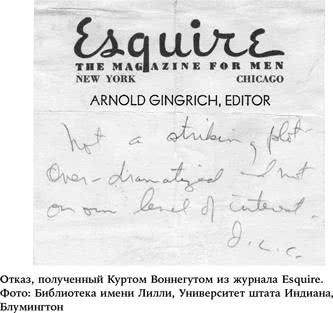 Esquire
THE MAGAZINE FOR MEN
NEW YORK CHICAGO
ARNOLD GINGRICH, EDITOR
Not a striking plot
Over-dramatized and not
on our level of interest.
J.L.C.
Отказ, полученный Куртом Воннегутом из журнала Esquire.
Фото: Библиотека имени Лилли, Университет штата Индиана,
Блумингтон